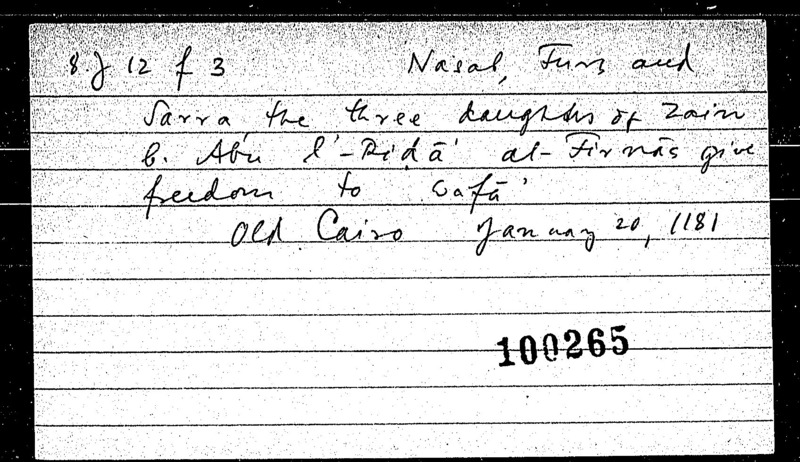 8 J 12 f 3 Nasab, Furs and
Sarra, the three daughters of Zain
b. Abū l'-Riḍā' al-Firnās give
freedom to Wafā'
Old Cairo January 20, 1181
100265